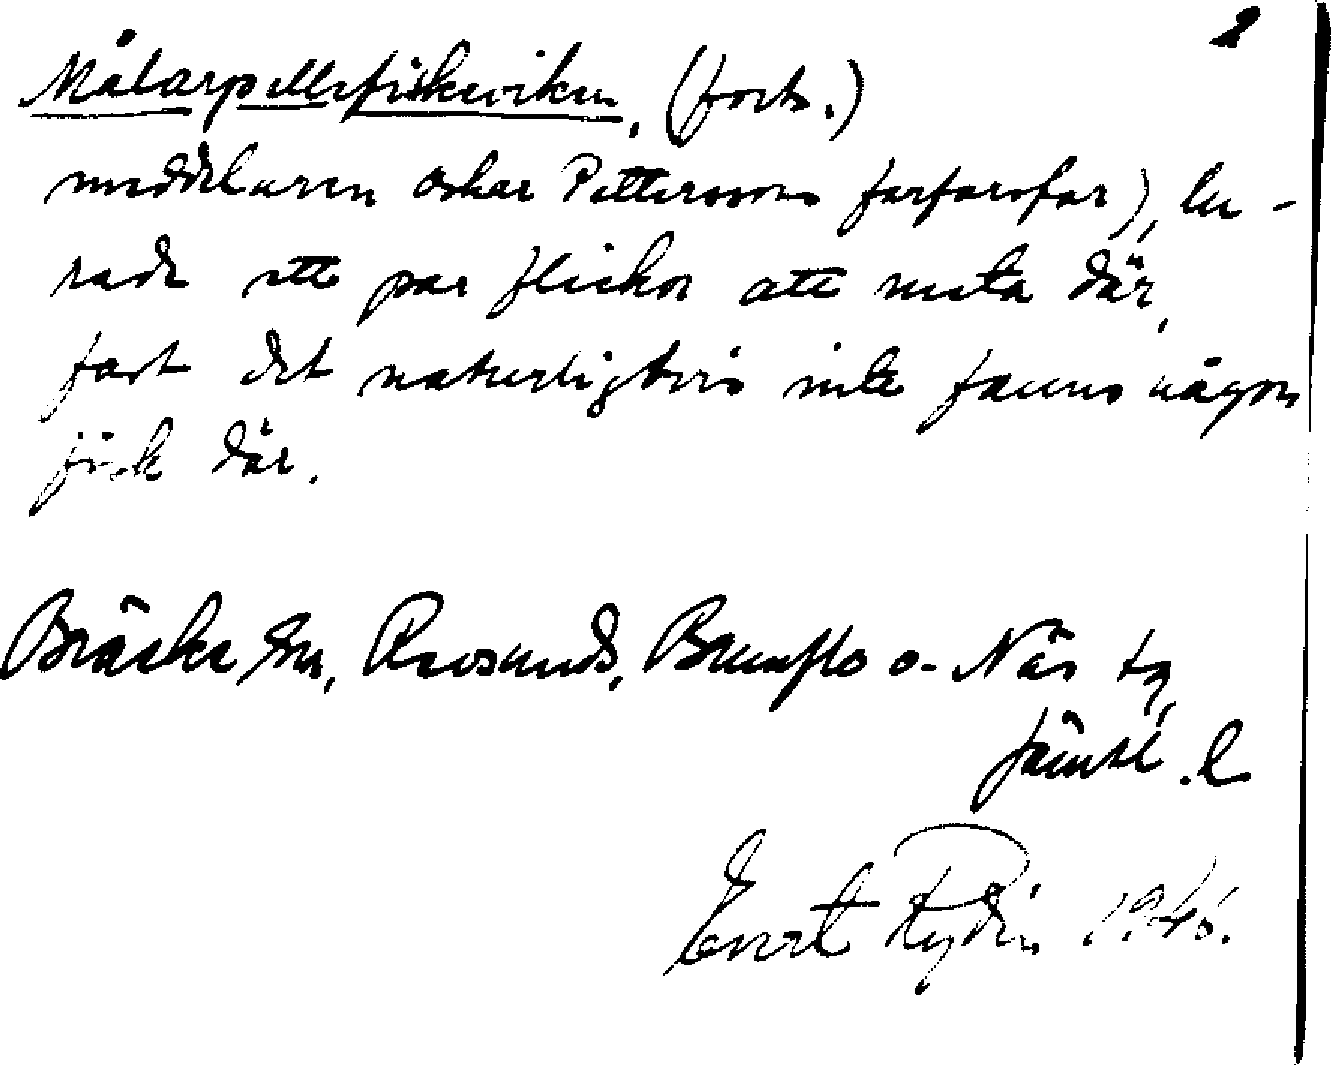 2
Målarpellefiskeviken, (forts.)
meddelaren Oskar Petterssons farfarsfar), lu-
rade ett par flickor att meta där,
fast det naturligtvis inte fanns någon
fisk där.
Bräcke sn, Revsunds, Brunflo o. Näs tg,
Jämtl. l
Evert Rydin 1946.